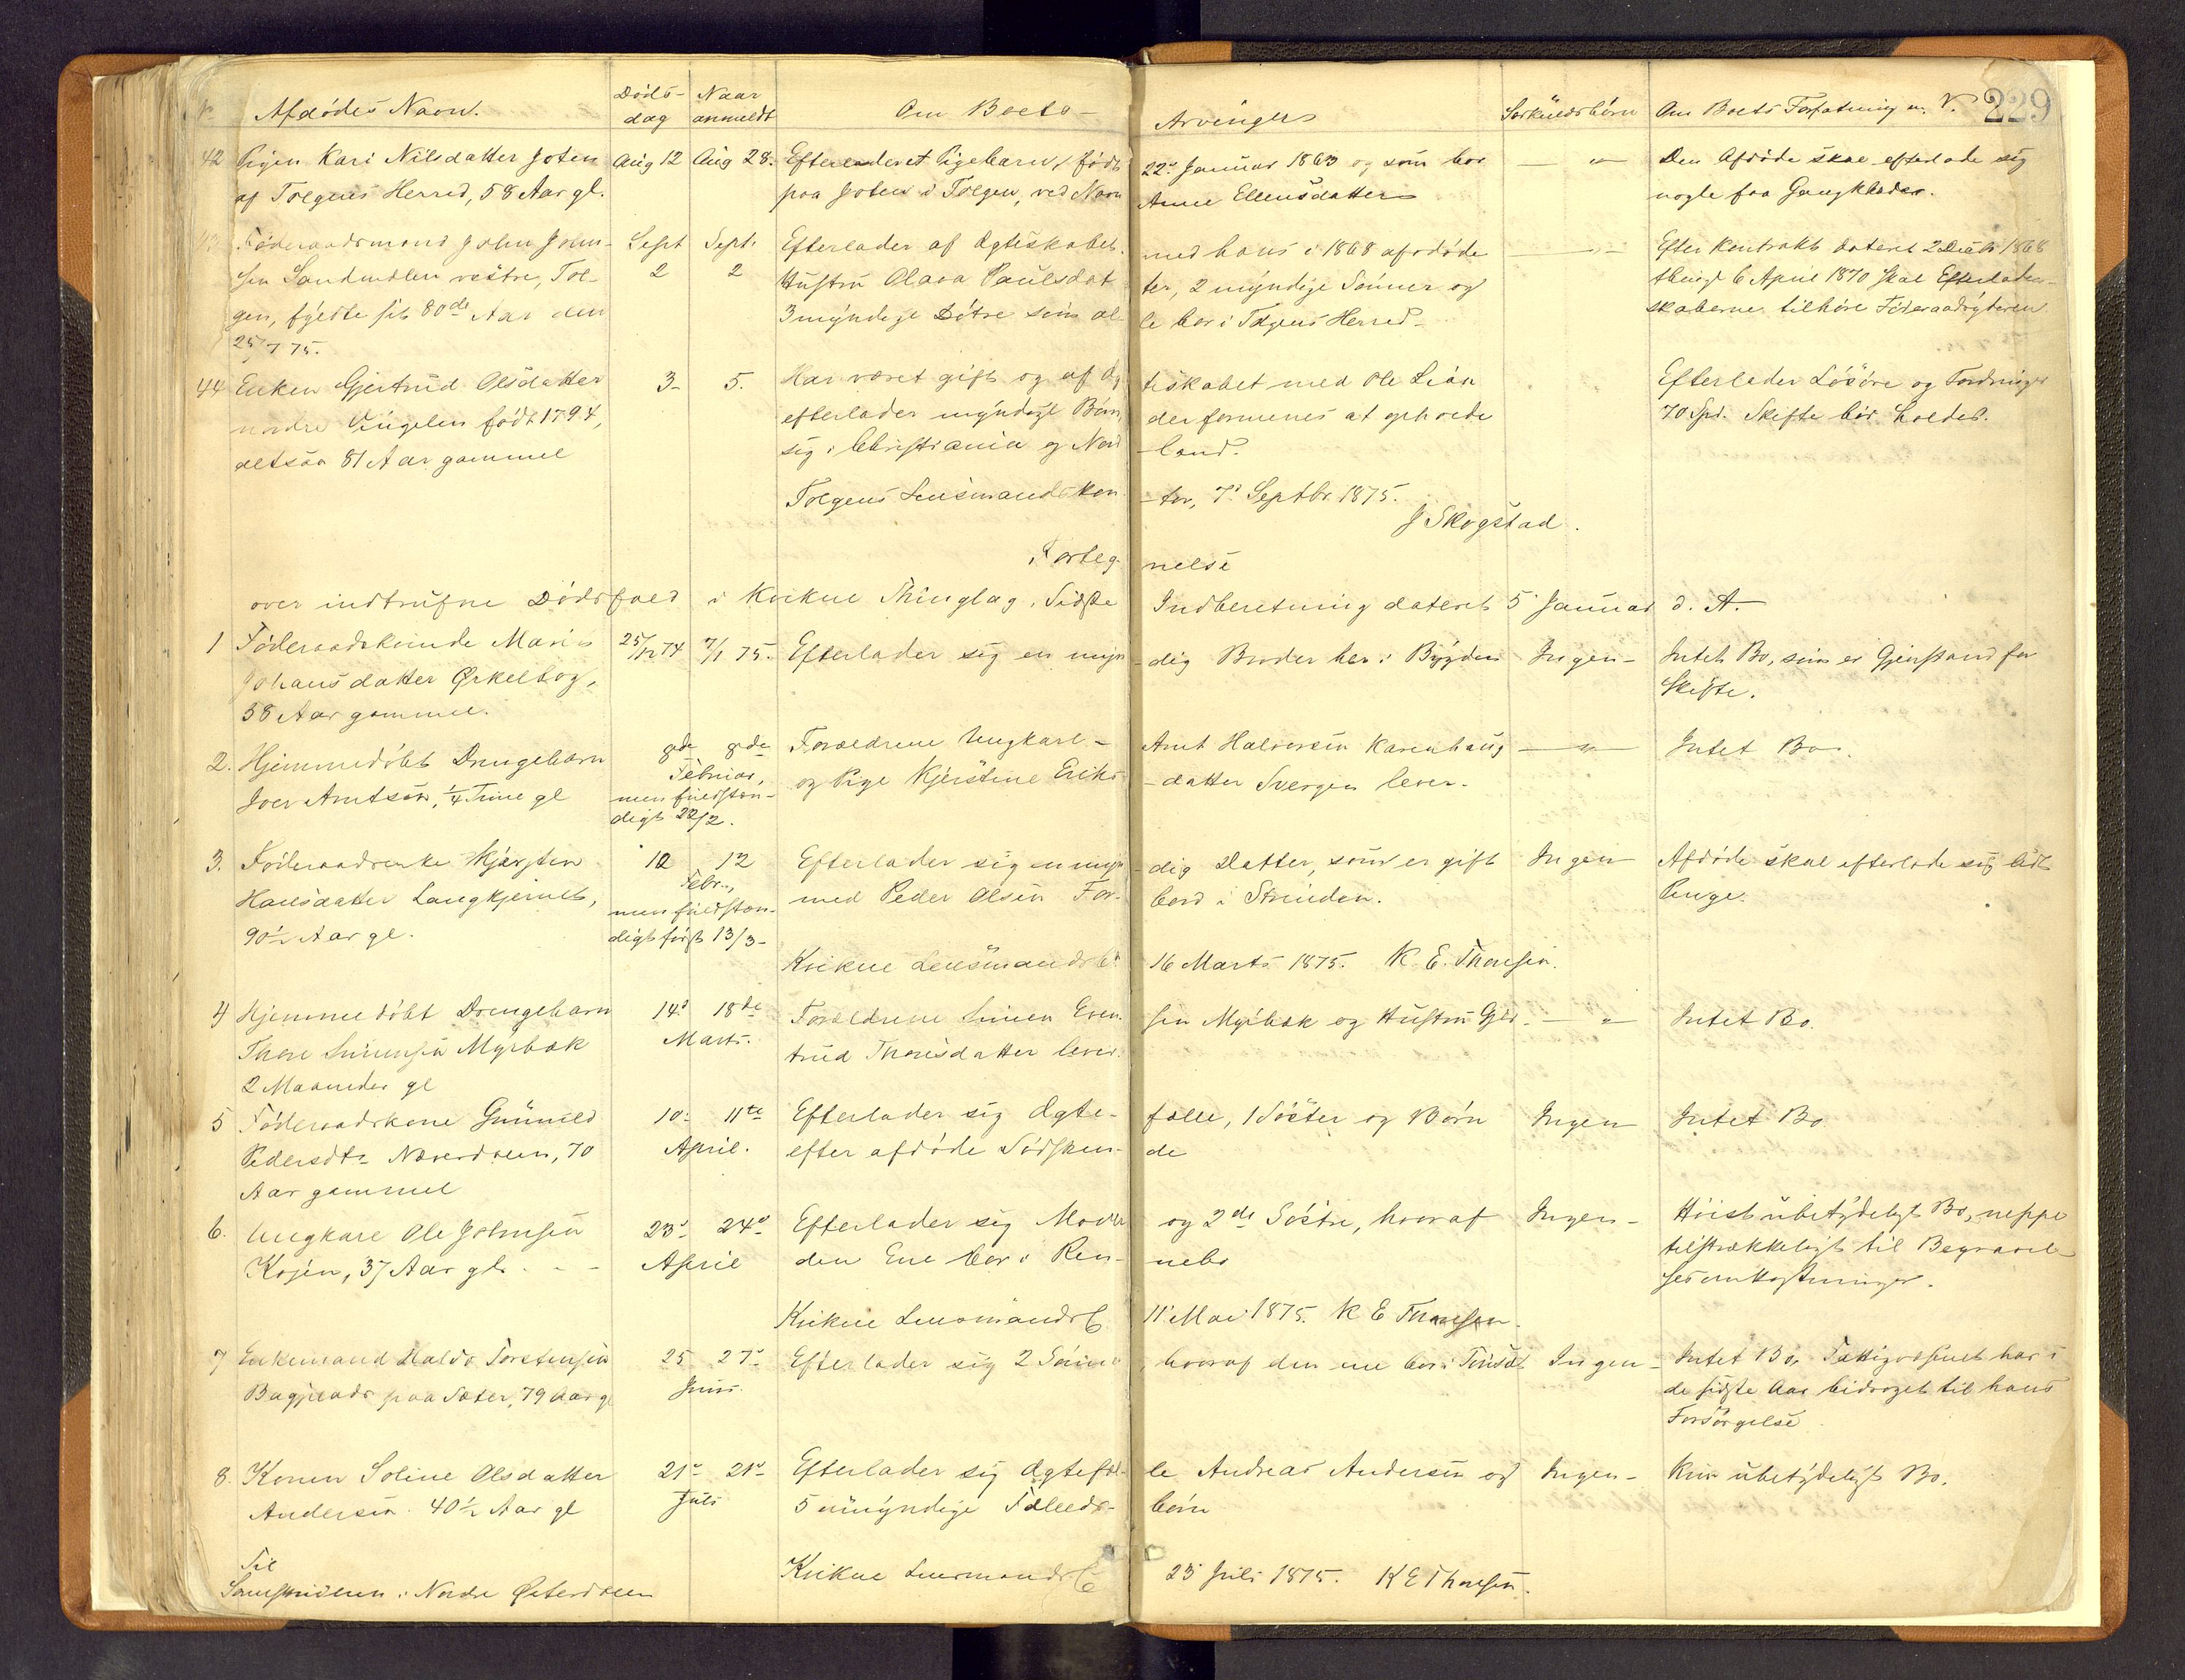 N Afdødes Navn. Døds- dag Naar anmeldt Om Boets Arvinger Særkuldsbørn Om Boets Forfatning m. V. 229
42 Pigen Kari Nilsdatter Joten Aug 12 Aug 28. Efterladeret Pigebarn, født 22de Januar 1863 og som bor — " — Den Afdøde skal efterlade sig
af Tolgens Herred, 58 Aar gl. paa Joten i Tolgen, ved Navn Anne Ellensdatter nogle faa Gangklæder.
43 Føderaadsmand John John- Sept Sept. Efterlader af Ægteskabet med hans i 1868 afdøde — " — Efter Kontrakt dateret 2 Decbr 1868
sen Sandmælen vestre, Tol- 2 2 Hustru Olava Paulsdat ter, 2 myndige Sønner og thingl 6 April 1870 skal Efterladen-
gen, fyldte sit 80de Aar den 3 myndige Døtre som al- le bor i Tolgens Herred skaberne tilhøre Føderaadsyderen
25/7 75.
44 Enken Gjertrud Olsdatter 3- 5. Har været gift og af Æg teskabet med Ole Lian Efterlader Løsøre og Fordringer
nordre Vingelen født 1794, efterlader myndige Børn, der formenes at opholde 70 Spd. Skifte bør holdes.
altsaa 81 Aar gammel sig i Christiania og Nord -land.
Tolgens Lensmandskon -tor, 7de Septbr. 1875.
J Skogstad.
Forteg- nelse
over indtrufne Dødsfald i Kvikne Thinglag. Sidste Indberetning dateret 5 Januar d. A.
1 Føderaadskvinde Mari 25/12 74 7/1 75. Efterlader sig en myn -dig Broder her i Bygden Ingen- Intet Bo, som er Gjenstand for
Johansdatter Ørkelbog, Skifte.
38 Aar gammel.
2. Hjemmedøbt Drengebarn 9de 9de Forældrene Ungkarl - Arnt Halvorsen Karenhaug — " — Intet Bo.
Iver Arntsøn, 1/4 Time gl Februar, og Pige Kjerstine Eriks -datter Svergen lever.
men fuldstæn-
digt 22/2.
3. Føderaadsenke Kjersten 12 12 Efterlader sig en myn -dig Datter, som er gift Ingen Afdøde skal efterlade sig lidt
Hansdatter Langkjernet, Febr., med Peder Olsen For- bord i Strinden. Penge.
90 1/2 Aar gl. men fuldstæn-
digt først 13/3-
Kvikne Lensmandsk. 16 Marts 1875. K. E. Thoresen.
4 Hjemmedøbt Drengebarn 14de 18de Forældrene Simen Even- sen Myrbæk og Hustru Gjer- — " — Intet Bo.
Thore Simensen Myrbæk Marts. trud Thoresdatter lever.
2 Maaneder gl
5 Føderaadskone Gunnild 10- 11te Efterlader sig Ægte- fælle, 1 Søster og Børn Ingen Intet Bo
Pedersdtr Næverdalen, 70 April. efter afdøde Sødsken- de
Aar gammel
6. Ungkarl Ole Johnsen 23de 24de Efterlader sig Moder og 2de Søstre, hvoraf Ingen- Høist ubetydeligt Bo, neppe
Kojen, 37 Aar gl. April den Ene bor i Ren- nebu tilstrækkeligt til Begravel-
sesomkostninger.
Kvikne Lensmandsk 11 Mai 1875. K E Thoresen.
7 Enkemand Haldo Torstensen 25 27de Efterlader sig 2 Sønner, hvoraf den ene bor i Tønset Ingen- Intet Bo. Fattigvæsenet har i
Bagplads paa Sæter, 79 Aar gl Juni. de sidste Aar bidraget til hans
Forsørgelse.
8. Konen Soline Olsdatter 21de 21de Efterlader sig Ægtefæl- le Andreas Andersen og Ingen- Kun ubetydeligt Bo.
Andersen. 40 1/2 Aar gl Juli 5 umyndige Fælleds- børn
Kvikne Lensmandsk 23 Juli 1875. K E Thoresen.
Til
Sorenskriveren i Nordre Østerdalen